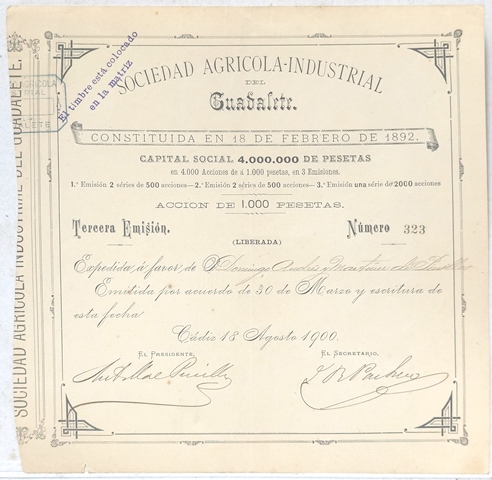 El timbre está colocado
en la matriz
SOCIEDAD AGRICOLA-INDUSTRIAL
DEL
Guadalete.
CONSTITUIDA EN 18 DE FEBRERO DE 1892.
CAPITAL SOCIAL 4.000.000 DE PESETAS
en 4.000 Acciones de á 1.000 pesetas, en 3 Emisiones.
1.ª Emisión 2 séries de 500 acciones—2.ª Emisión 2 séries de 500 acciones—3.ª Emisión una série de 2000 acciones
ACCION DE 1.000 PESETAS.
Tercera Emisión.
Número 323
(LIBERADA)
Expedida á favor de D. Domingo
Emitida por acuerdo de 30 de Marzo y escritura de
esta fecha
Cádiz 18 Agosto 1900.
EL PRESIDENTE,
EL SECRETARIO,
SOCIEDAD AGRICOLA INDUSTRIAL DEL GUADALETE.